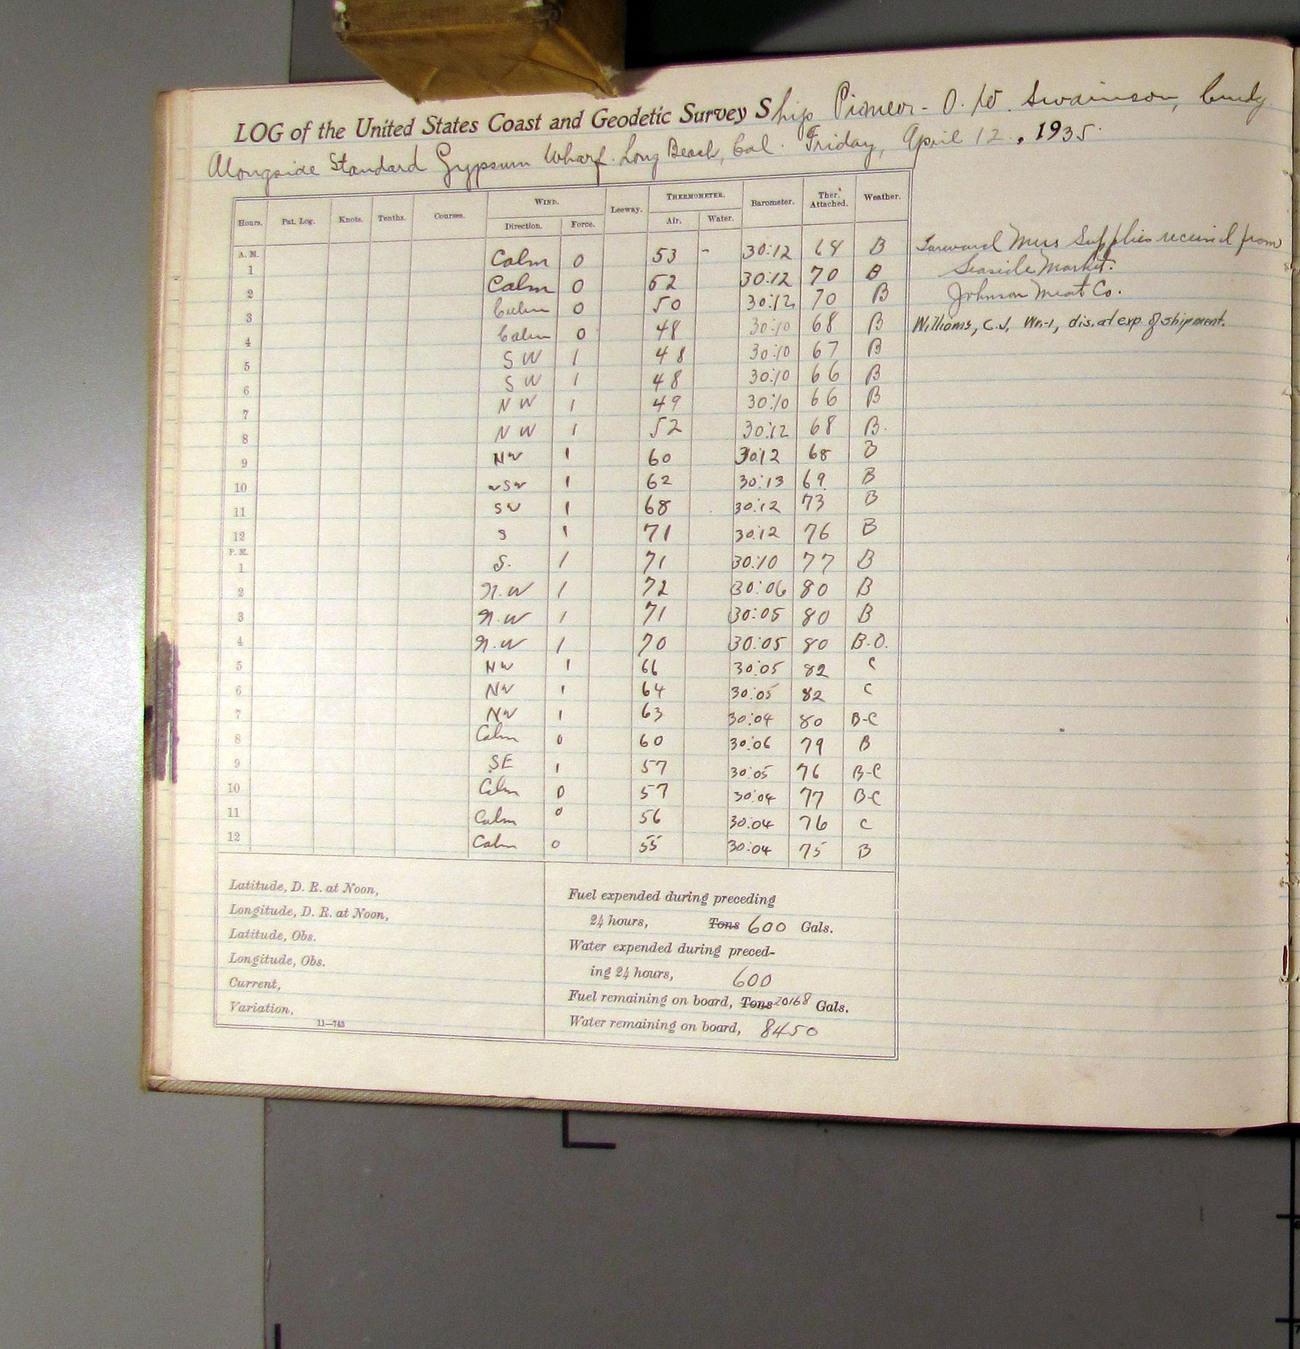 LOG of the United States Coast and Geodetic Survey Ship Pioneer - O. W. Swainson, Comdg
Alongside Standard Gypsum Wharf. Long Beach, Cal. Friday, April 12, 1935.
Hours. Pat. Log. Knots. Tenths. Courses. WIND. Leeway. THERMOMETER. Barometer. Ther. Attached. Weather.
Direction. Force. Air. Water.
A. M.
1 Calm 0 53 - 30:12 68 B
2 Calm 0 52 30:12 70 B
3 Calm 0 50 30:12 70 B
4 Calm 0 48 30:10 68 B
5 SW 1 48 30:10 67 B
6 SW 1 48 30:10 66 B
7 NW 1 49 30:10 66 B
8 NW 1 52 30:12 68 B.
9 NW 1 60 30:12 68 B
10 WSW 1 62 30:13 69. B
11 SW 1 68 30:12 73 B
12 S 1 71 30:12 76 B
P. M.
1 S. 1 71 30:10 77 B
2 N.W 1 72 30:06 80 B
3 N.W 1 71 30:05 80 B
4 N.W 1 70 30:05 80 B.O.
5 NW 1 66 30:05 82 C
6 NW 1 64 30:05 82 C
7 NW 1 63 30:04 80 B-C
8 Calm 0 60 30:06 79 B
9 SE 1 57 30:05 76 B-C
10 Calm 0 57 30:04 77 B-C
11 Calm 0 56 30:04 76 C
12 Calm 0 55 30:04 75 B
Forward Mess Supplies received from
Seaside Market.
Johnson Meat Co.
Williams, C.J., Wn-1, dis. at exp. of shipment.
Latitude, D. R. at Noon,
Longitude, D. R. at Noon,
Latitude, Obs.
Longitude, Obs.
Current,
Variation,
11—743
Fuel expended during preceding
24 hours, Tons 600 Gals.
Water expended during preced-
ing 24 hours, 600
Fuel remaining on board, Tons 20168 Gals.
Water remaining on board, 8450